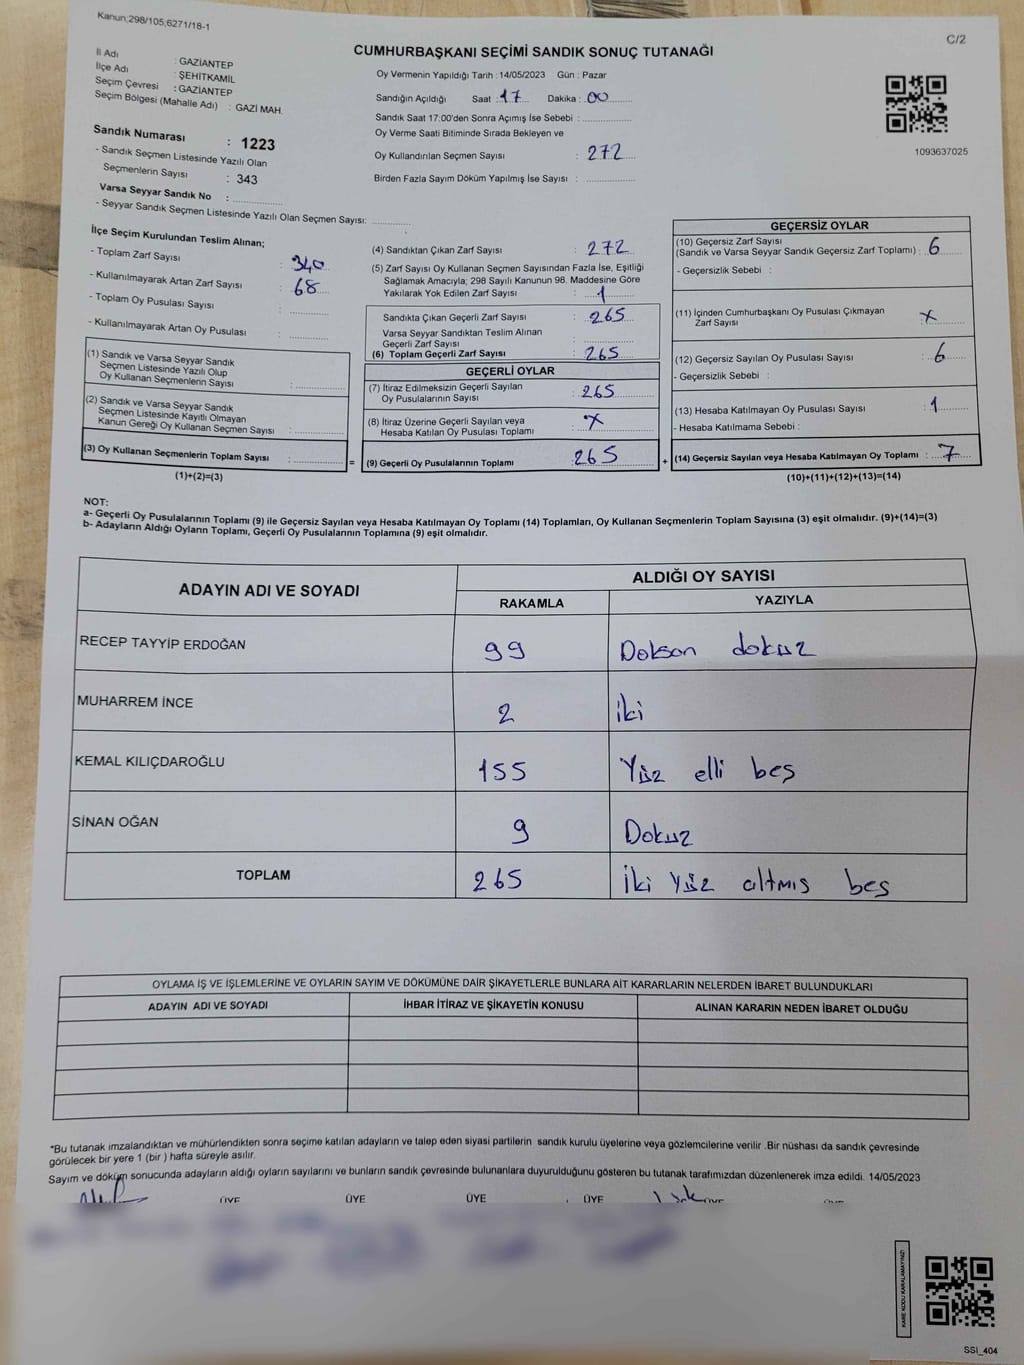 Kanun;298/105,6271/18-1
C/2
CUMHURBAŞKANI SEÇİMİ SANDIK SONUÇ TUTANAĞI
İl Adı : GAZİANTEP
İlçe Adı : ŞEHİTKAMİL
Seçim Çevresi : GAZİANTEP
Seçim Bölgesi (Mahalle Adı) : GAZİ MAH.
Sandık Numarası : 1223
- Sandık Seçmen Listesinde Yazılı Olan
Seçmenlerin Sayısı : 343
Varsa Seyyar Sandık No :
- Seyyar Sandık Seçmen Listesinde Yazılı Olan Seçmen Sayısı:
Oy Vermenin Yapıldığı Tarih : 14/05/2023 Gün : Pazar
Sandığın Açıldığı Saat : 17 Dakika : 00
Sandık Saat 17:00'den Sonra Açımış İse Sebebi :
Oy Verme Saati Bitiminde Sırada Bekleyen ve
Oy Kullandırılan Seçmen Sayısı : 272
Birden Fazla Sayım Döküm Yapılmış İse Sayısı :
1093637025
İlçe Seçim Kurulundan Teslim Alınan;
- Toplam Zarf Sayısı : 340
- Kullanılmayarak Artan Zarf Sayısı : 68
- Toplam Oy Pusulası Sayısı :
- Kullanılmayarak Artan Oy Pusulası :
(1) Sandık ve Varsa Seyyar Sandık
Seçmen Listesinde Yazılı Olup
Oy Kullanan Seçmenlerin Sayısı :
(2) Sandık ve Varsa Seyyar Sandık
Seçmen Listesinde Kayıtlı Olmayan
Kanun Gereği Oy Kullanan Seçmen Sayısı :
(3) Oy Kullanan Seçmenlerin Toplam Sayısı :
(1)+(2)=(3)
(4) Sandıktan Çıkan Zarf Sayısı : 272
(5) Zarf Sayısı Oy Kullanan Seçmen Sayısından Fazla İse, Eşitliği
Sağlamak Amacıyla; 298 Sayılı Kanunun 98. Maddesine Göre
Yakılarak Yok Edilen Zarf Sayısı : 1
Sandıkta Çıkan Geçerli Zarf Sayısı : 265
Varsa Seyyar Sandıktan Teslim Alınan
Geçerli Zarf Sayısı :
(6) Toplam Geçerli Zarf Sayısı : 265
GEÇERLİ OYLAR
(7) İtiraz Edilmeksizin Geçerli Sayılan
Oy Pusulalarının Sayısı : 265
(8) İtiraz Üzerine Geçerli Sayılan veya
Hesaba Katılan Oy Pusulası Toplamı : x
= (9) Geçerli Oy Pusulalarının Toplamı : 265
GEÇERSİZ OYLAR
(10) Geçersiz Zarf Sayısı
(Sandık ve Varsa Seyyar Sandık Geçersiz Zarf Toplamı) : 6
- Geçersizlik Sebebi :
(11) İçinden Cumhurbaşkanı Oy Pusulası Çıkmayan
Zarf Sayısı : x
(12) Geçersiz Sayılan Oy Pusulası Sayısı : 6
- Geçersizlik Sebebi :
(13) Hesaba Katılmayan Oy Pusulası Sayısı : 1
- Hesaba Katılmama Sebebi :
+ (14) Geçersiz Sayılan veya Hesaba Katılmayan Oy Toplamı : 7
(10)+(11)+(12)+(13)=(14)
NOT:
a- Geçerli Oy Pusulalarının Toplamı (9) ile Geçersiz Sayılan veya Hesaba Katılmayan Oy Toplamı (14) Toplamları, Oy Kullanan Seçmenlerin Toplam Sayısına (3) eşit olmalıdır. (9)+(14)=(3)
b- Adayların Aldığı Oyların Toplamı, Geçerli Oy Pusulalarının Toplamına (9) eşit olmalıdır.
ADAYIN ADI VE SOYADI
ALDIĞI OY SAYISI
RAKAMLA YAZIYLA
RECEP TAYYİP ERDOĞAN 99 Doksan dokuz
MUHARREM İNCE 2 iki
KEMAL KILIÇDAROĞLU 155 Yüz elli beş
SİNAN OĞAN 9 Dokuz
TOPLAM 265 İki Yüz altmış beş
OYLAMA İŞ VE İŞLEMLERİNE VE OYLARIN SAYIM VE DÖKÜMÜNE DAİR ŞİKAYETLERLE BUNLARA AİT KARARLARIN NELERDEN İBARET BULUNDUKLARI
ADAYIN ADI VE SOYADI İHBAR İTİRAZ VE ŞİKAYETİN KONUSU ALINAN KARARIN NEDEN İBARET OLDUĞU
*Bu tutanak imzalandıktan ve mühürlendikten sonra seçime katılan adayların ve talep eden siyasi partilerin sandık kurulu üyelerine veya gözlemcilerine verilir .Bir nüshası da sandık çevresinde
görülecek bir yere 1 (bir ) hafta süreyle asılır.
Sayım ve döküm sonucunda adayların aldığı oyların sayılarını ve bunların sandık çevresinde bulunanlara duyurulduğunu gösteren bu tutanak tarafımızdan düzenlenerek imza edildi. 14/05/2023
ÜYE ÜYE ÜYE ÜYE
KARE KODU KARALAMAYINIZ!
SSI_404